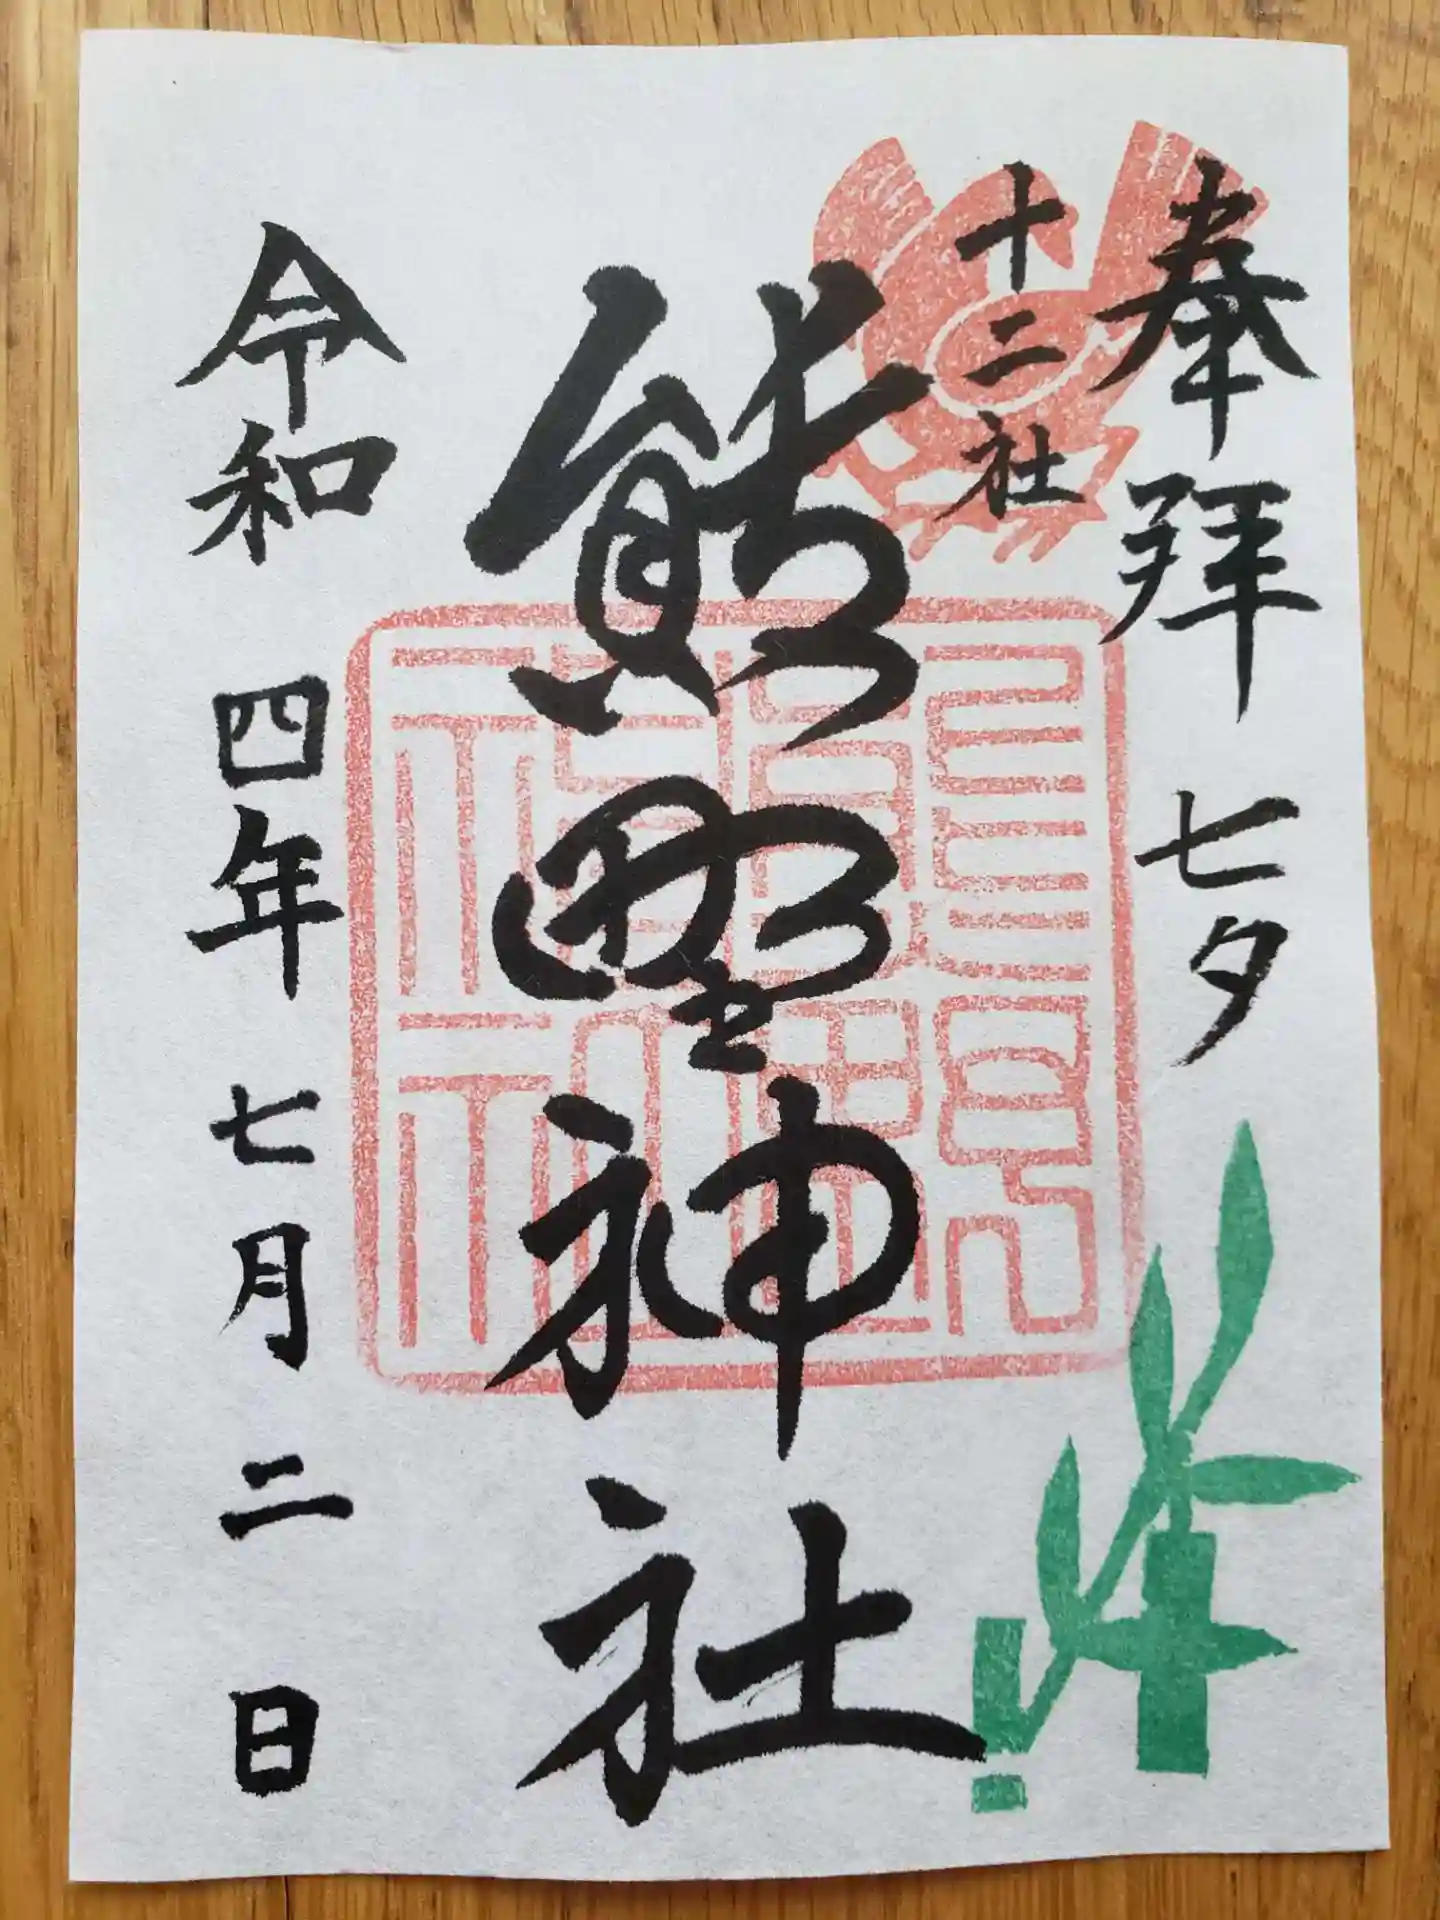 奉拝 七夕
十二社
熊野神社
令和 四年 七月 二 日